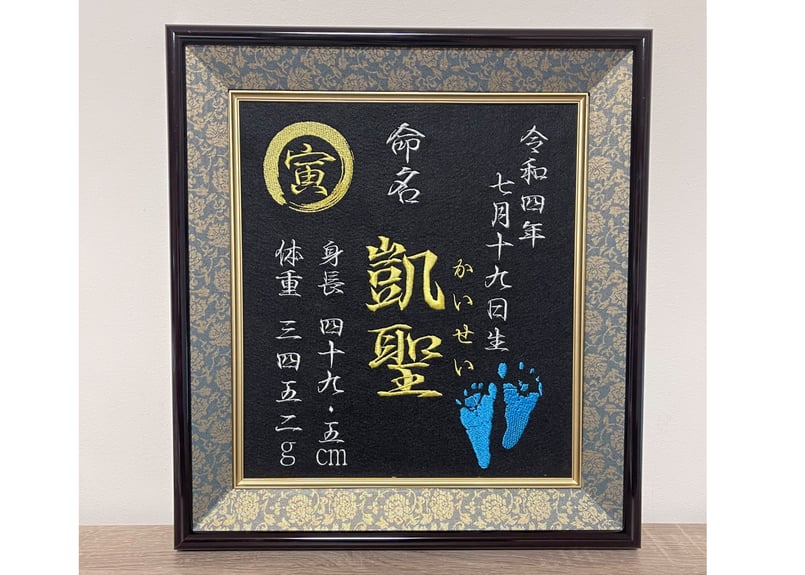 令和四年
七月十九日生
かいせい
命名
凱聖
身長 四十九・五cm
体重 三四五二g
寅